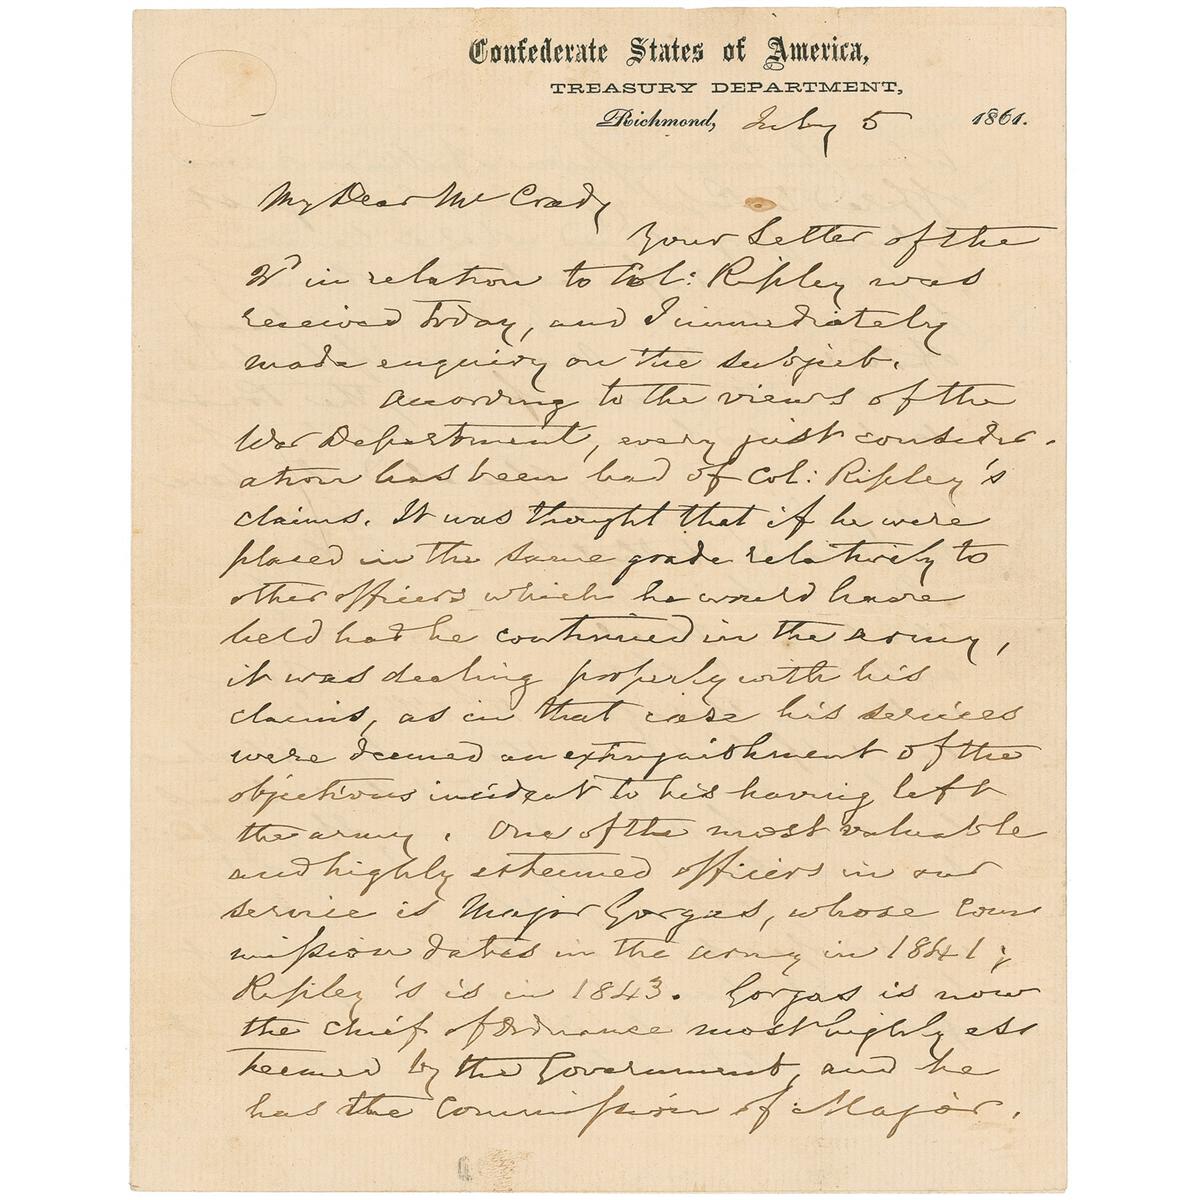 Confederate States of America,
TREASURY DEPARTMENT,
Richmond, July 5 1861.
My Dear McCrady
Your Letter of the
2d in relation to Col: Ripley was
received today, and I immediately
made enquiry on the subject.
According to the views of the
War Department, every just consider-
ation has been had of Col: Ripley's
claims. It was thought that if he were
placed in the same grade relatively to
other officers which he would have
held had he continued in the army,
it was dealing properly with his
claims, as in that case his services
were deemed an extinguishment of the
objections incident to his having left
the army. One of the most valuable
and highly esteemed officers in our
service is Major Gorgas, whose Com
mission dates in the army in 1841;
Ripley's is in 1843. Gorgas is now
the chief of Ordnance most highly es
teemed by the Government, and he
has the Commission of Major.